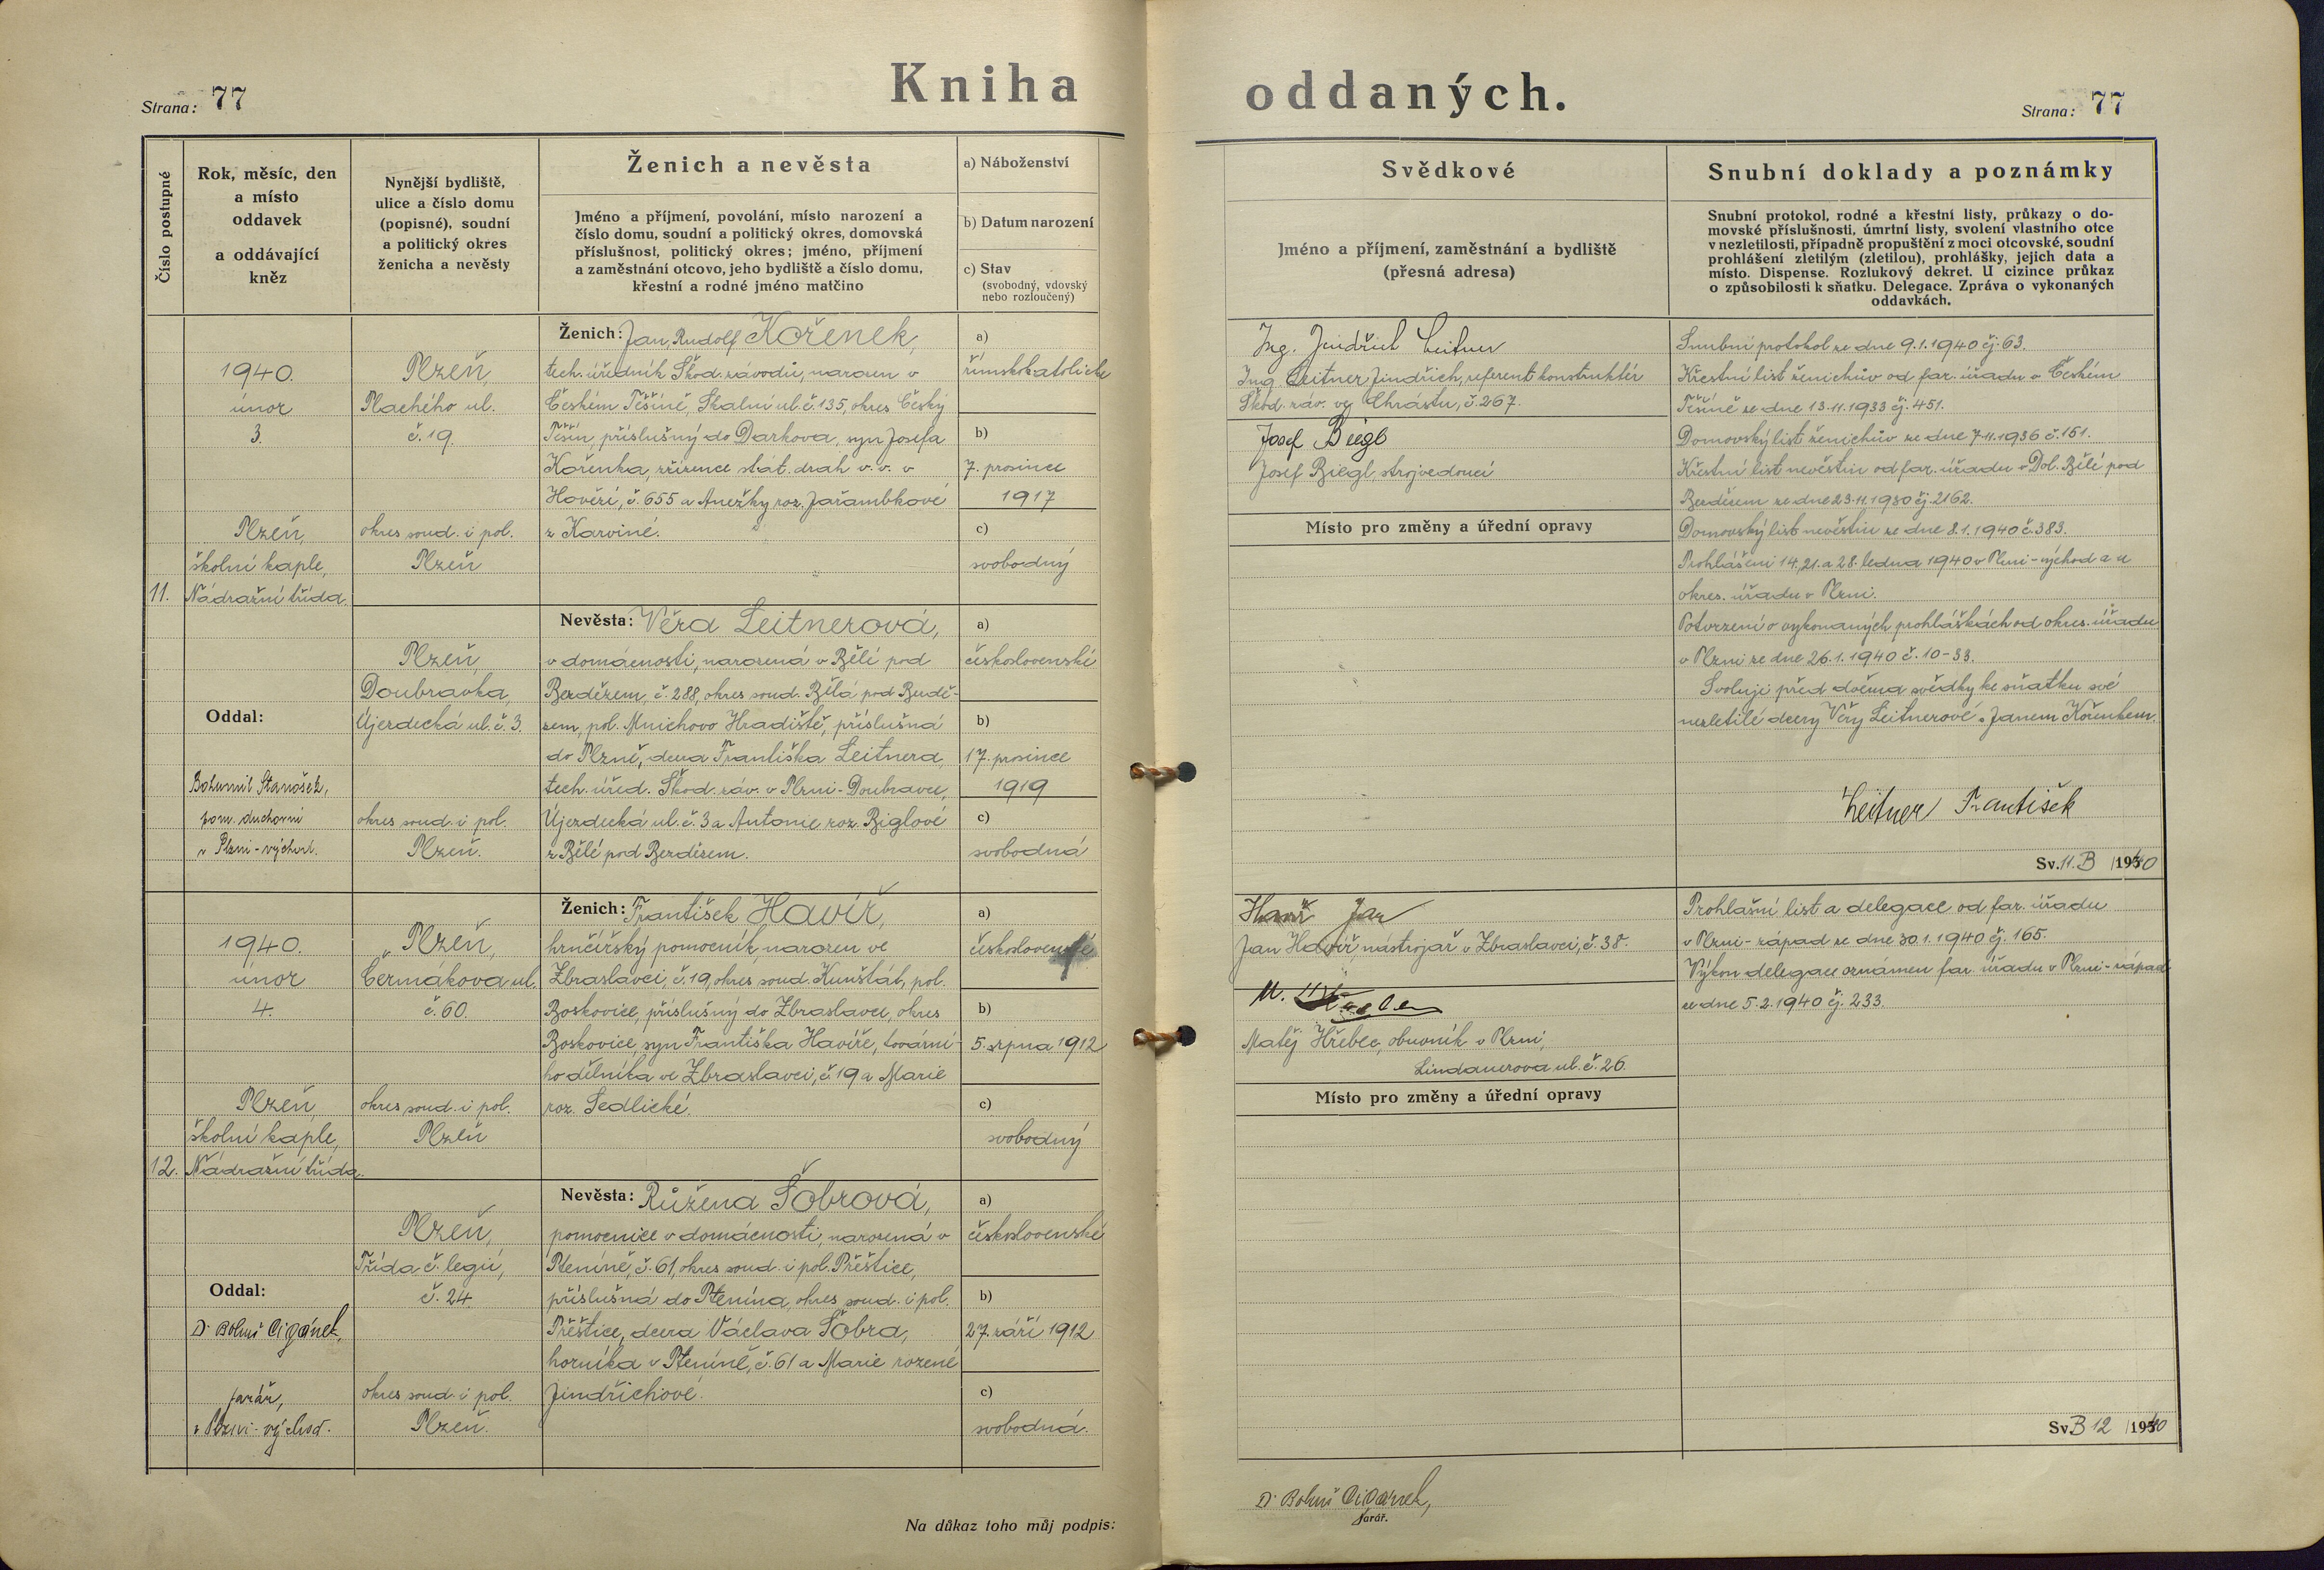 Kniha oddaných.
Strana: 77
Strana: 77
Číslo postupné
Rok, měsíc, den
a místo
oddavek
a oddávající
kněz
Nynější bydliště,
ulice a číslo domu
(popisné), soudní
a politický okres
ženicha a nevěsty
Ženich a nevěsta
Jméno a příjmení, povolání, místo narození a
číslo domu, soudní a politický okres, domovská
příslušnost, politický okres; jméno, příjmení
a zaměstnání otcovo, jeho bydliště a číslo domu,
křestní a rodné jméno matčino
a) Náboženství
b) Datum narození
c) Stav
(svobodný, vdovský
nebo rozloučený)
Svědkové
Jméno a příjmení, zaměstnání a bydliště
(přesná adresa)
Snubní doklady a poznámky
Snubní protokol, rodné a křestní listy, průkazy o do-
movské příslušnosti, úmrtní listy, svolení vlastního otce
v nezletilosti, případně propuštění z moci otcovské, soudní
prohlášení zletilým (zletilou), prohlášky, jejich data a
místo. Dispense. Rozlukový dekret. U cizince průkaz
o způsobilosti k sňatku. Delegace. Zpráva o vykonaných
oddavkách.
11.
1940.
únor
3.
Plzeň,
školní kaple,
Nádražní třída.
Oddal:
Bohumil Stanošek,
pom. duchovní
v Plzni-východ.
Plzeň,
Plachého ul.
č. 19.
okres soud. i pol.
Plzeň
Ženich: Jan, Rudolf Kořenek,
tech. úředník Škod. závodů, narozen v
Českém Těšíně, Skalní ul. č. 135, okres Český
Těšín, příslušný do Darkova, syn Josefa
Kořenka, zřízence stát. drah v. v. v
č. 655 a Anežky roz. Jařambkové
z Karviné.
a)
římskokatolické
b)
7. prosince
1917
c)
svobodný
Plzeň,
Doubravka,
Újezdecká ul. č. 3.
okres soud. i pol.
Plzeň.
Nevěsta: Věra Leitnerová,
v domácnosti, narozená v Bělé pod
Bezdězem, č. 288, okres soud. Bělá pod Bezdě-
zem, pol. Mnichovo Hradiště, příslušná
do Plzně, dcera Františka Leitnera,
tech. úřed. Škod. záv. v Plzni-Doubravce,
Újezdecká ul. č. 3 a Antonie roz. Biglové
z Bělé pod Bezdězem.
a)
československé
b)
17. prosince
1919
c)
svobodná
Ing. Jindřich Leitner
Ing. Leitner Jindřich, referent konstruktér
Škod. záv. ve Chrástu, č. 267.
Josef Biegl
Josef Biegl, strojvedoucí
Místo pro změny a úřední opravy
Snubní protokol ze dne 9.1.1940 čj. 63.
Křestní list ženichův od far. úřadu v Českém
Těšíně ze dne 13.11.1933 čj. 451.
Domovský list ženichův ze dne 7.11.1936 č. 151.
Křestní list nevěstin od far. úřadu v Dol. Bělé pod
Bezdězem ze dne 23.11.1930 čj. 2162.
Domovský list nevěstin ze dne 8.1.1940 č. 383.
Prohlášení 14., 21. a 28. ledna 1940 v Plzni-východ a u
okres. úřadu v Plzni.
Potvrzení o vykonaných prohláškách od okres. úřadu
v Plzni ze dne 26.1.1940 č. 10-33.
Svoluji před dvěma svědky ke sňatku své
nezletilé dcery Věry Leitnerové s Janem Kořenkem.
Leitner František
Sv. 11. B /1940
12.
1940.
únor
4.
Plzeň
školní kaple,
Nádražní třída.
Oddal:
Dr Bohuš Cigánek,
farář,
v Plzni-východ.
Plzeň,
Čermákova ul.
č. 60.
okres soud. i pol.
Plzeň
Ženich: František Havíř,
hrnčířský pomocník, narozen ve
Zbraslavci, č. 19, okres soud. Kunštát, pol.
Boskovice, příslušný do Zbraslavce, okres
Boskovice, syn Františka Havíře, tovární-
ho dělníka ve Zbraslavci, č. 19 a Marie
roz. Sedlické.
a)
československé
b)
5. srpna 1912
c)
svobodný
Plzeň,
Třída č. legií,
č. 24.
okres soud. i pol.
Plzeň.
Nevěsta: Růžena Šobrová,
pomocnice v domácnosti, narozená v
Pteníně, č. 61, okres soud. i pol. Přeštice,
příslušná do Ptenína, okres soud. i pol.
Přeštice, dcera Václava Šobra,
horníka v Pteníně, č. 61 a Marie rozené
Jindřichové.
a)
československé
b)
27. září 1912
c)
svobodná.
Havíř Jan
Jan Havíř, nástrojař v Zbraslavci, č. 38.
M.
Matěj Hřebec, obuvník v Plzni,
Lindauerova ul. č. 26.
Místo pro změny a úřední opravy
Prohlašní list a delegace od far. úřadu
v Plzni-západ ze dne 30.1.1940 čj. 165.
Výkon delegace oznámen far. úřadu v Plzni-západ
ze dne 5.2.1940 čj. 233.
Sv. B 12 /1940
Na důkaz toho můj podpis:
Dr Bohuš Cigánek,
farář.